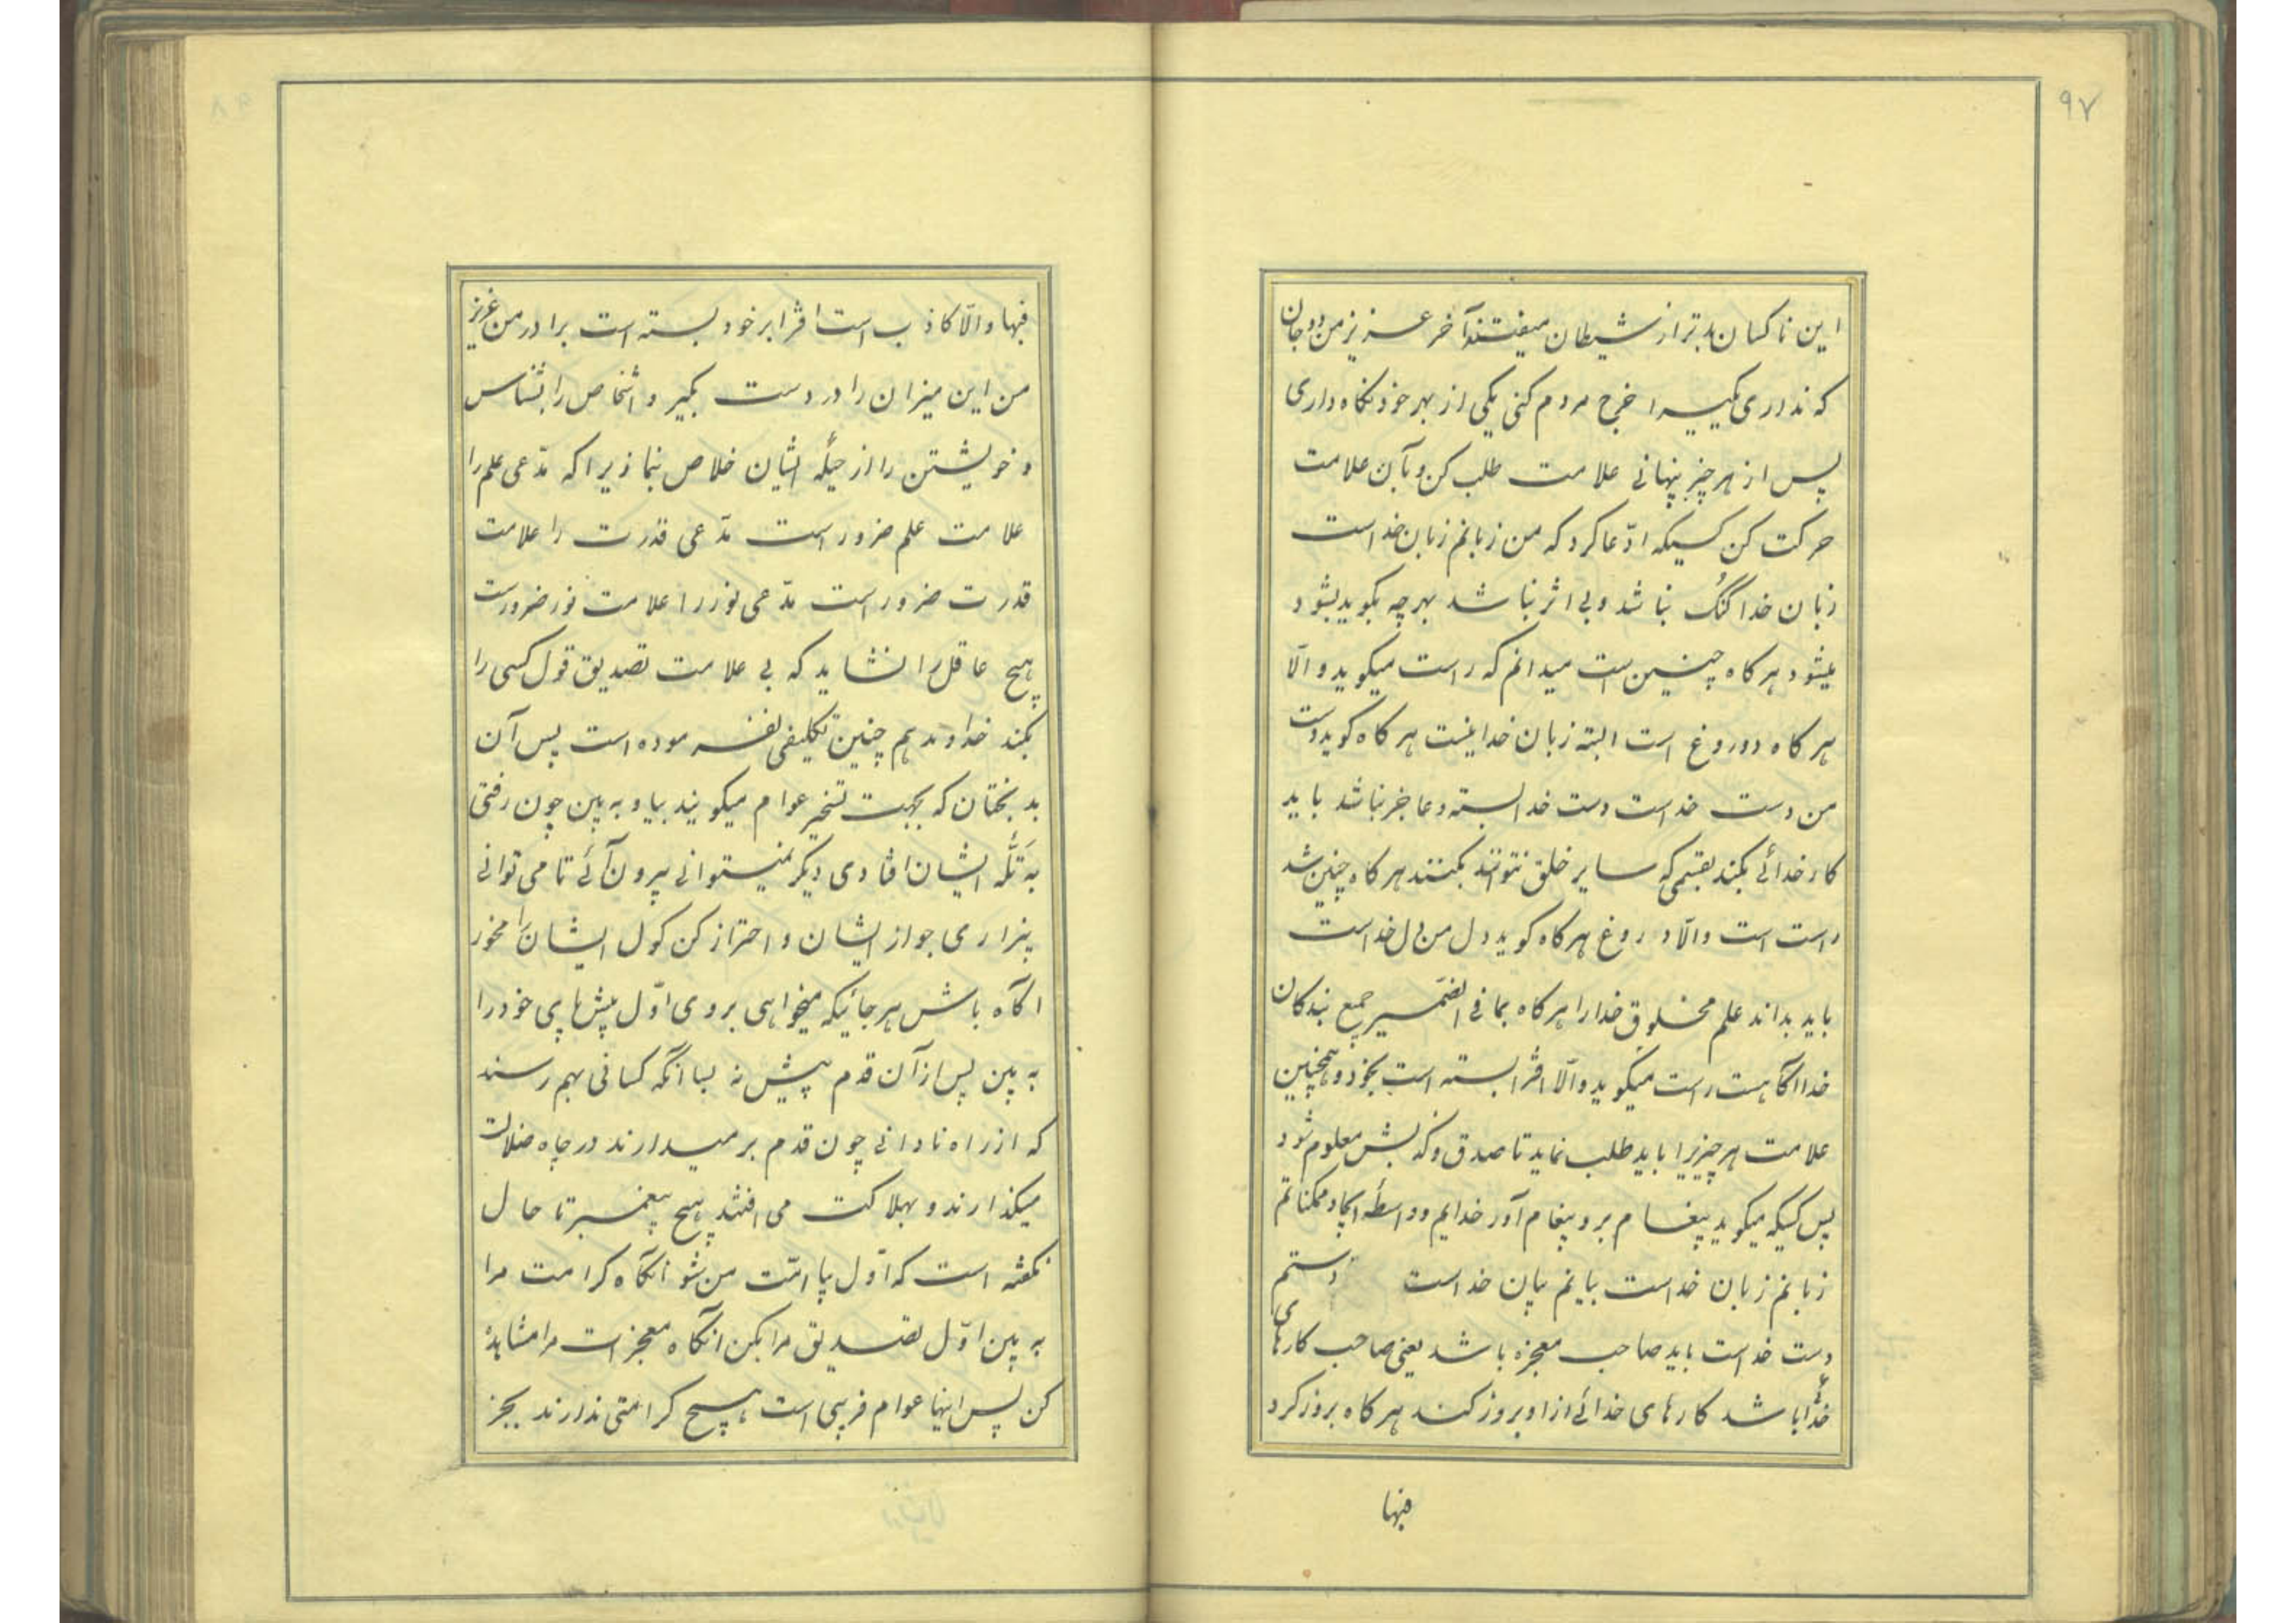 ۹۷
این ناکسان بدتر از شیطان میفتند آخر عزیز من دو جان
که نداری یکیرا خرج مردم کنی یکی از بهر خود نگاه داری
پس از هر چیز پنهانی علامت طلب کن و بآن علامت
حرکت کن کسیکه ادّعا کرد که من زبانم زبان خداست
زبان خدا گنگ نباشد و بی اثر نباشد بهر چه بگوید بشود
میشود هرگاه چنین است میدانم که راست میگوید و الّا
هرگاه دوروغ است البته زبان خدا نیست هرگاه گوید دست
من دست خداست دست خدا بسته و عاجز نباشد باید
کار خدائی بکند بقسمی که سایر خلق نتوانند بکنند هرگاه چنین شد
راست است و الّا دروغ هرگاه گوید دل من دل خداست
باید بداند علم مخلوق خدا را هرگاه بما فی الضّمیر جمیع بندگان
خدا آگاهست راست میگوید و الّا افترا بسته است بخود و همچنین
علامت هر چیزیرا باید طلب نماید تا صدق و کذبش معلوم شود
پس کسیکه میگوید پیغام بر و پیغام آور خدایم و واسطهٔ ایجاد ممکناتم
زبانم زبان خداست بیانم بیان خداست دستم
دست خداست باید صاحب معجزه باشد یعنی صاحب کارهای
خدا باشد کارهای خدائی از او بروز کند هرگاه بروز کرد
فبها
فبها و الّا کاذب است افترا بر خود بسته است برادر من عزیز
من این میزان را در دست بگیر و اشخاص را بشناس
و خویشتن را از حیلهٔ ایشان خلاص نما زیرا که مدّعی علم را
علامت علم ضرور است مدّعی قدرت را علامت
قدرت ضرور است مدّعی نور را علامت نور ضرور است
هیچ عاقل را نشاید که بی علامت تصدیق قول کسی را
بکند خداوند هم چنین تکلیفی نفرموده است پس آن
بدبختان که بجهت تسخیر عوام میگویند بیا و به بین چون رفتی
به تلّهٔ ایشان افتادی دیگر نمیتوانی بیرون آئی تا می توانی
بیزاری جو از ایشان و احتراز کن گول ایشان را مخور
آگاه باش هر جائیکه میخواهی بروی اوّل پیش پای خود را
به بین پس از آن قدم پیش نه بسا آنکه کسانی بهم رسند
که از راه نادانی چون قدم بر میدارند در چاه ضلالت
میگذارند و بهلاکت می افتند هیچ پیغمبر تا حال
نگفته است که اوّل بیا امّت من شو آنگاه کرامت مرا
به بین اوّل تصدیق مرا بکن آنگاه معجزات مرا مشاهده
کن پس اینها عوام فریبی است هیچ کرامتی ندارند بجز